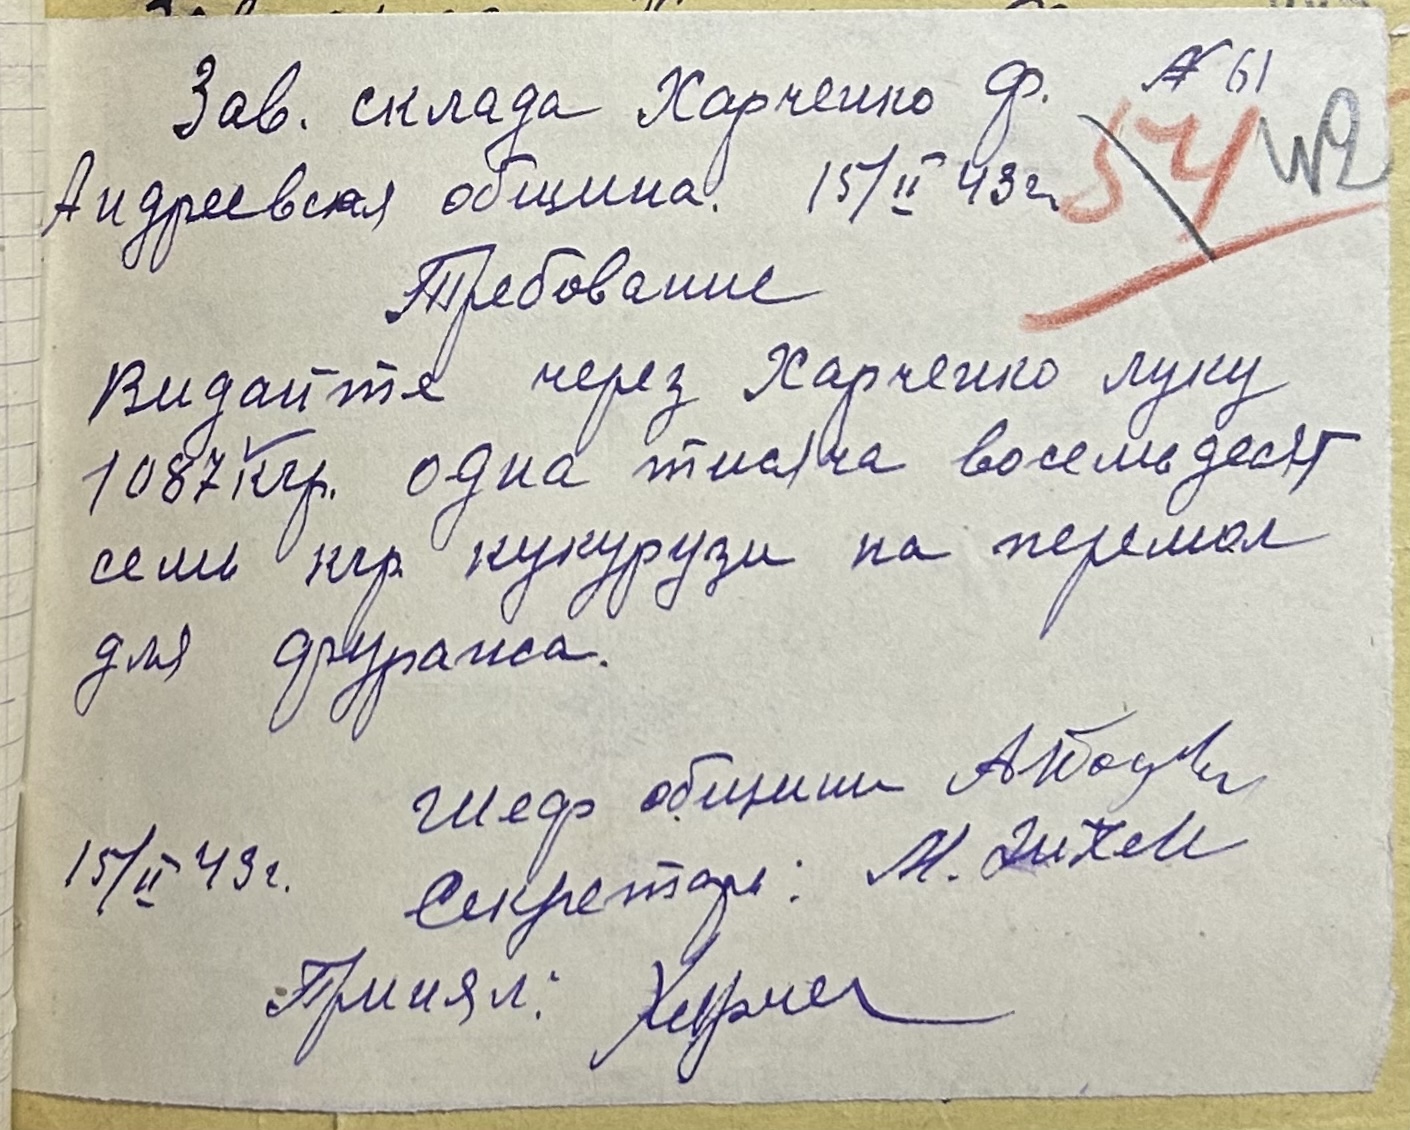 Зав. склада Харченко Ф. № 61
Андреевская община. 15/II 43г. 54 №2
Требование
Видайте через Харченко луку
1087 кгр. одна тисяча восемьдесят
семь кгр. кукурузи на перемол
для фуража.
Шеф общини
15/II 43г. Секретарь: М.
Принял: